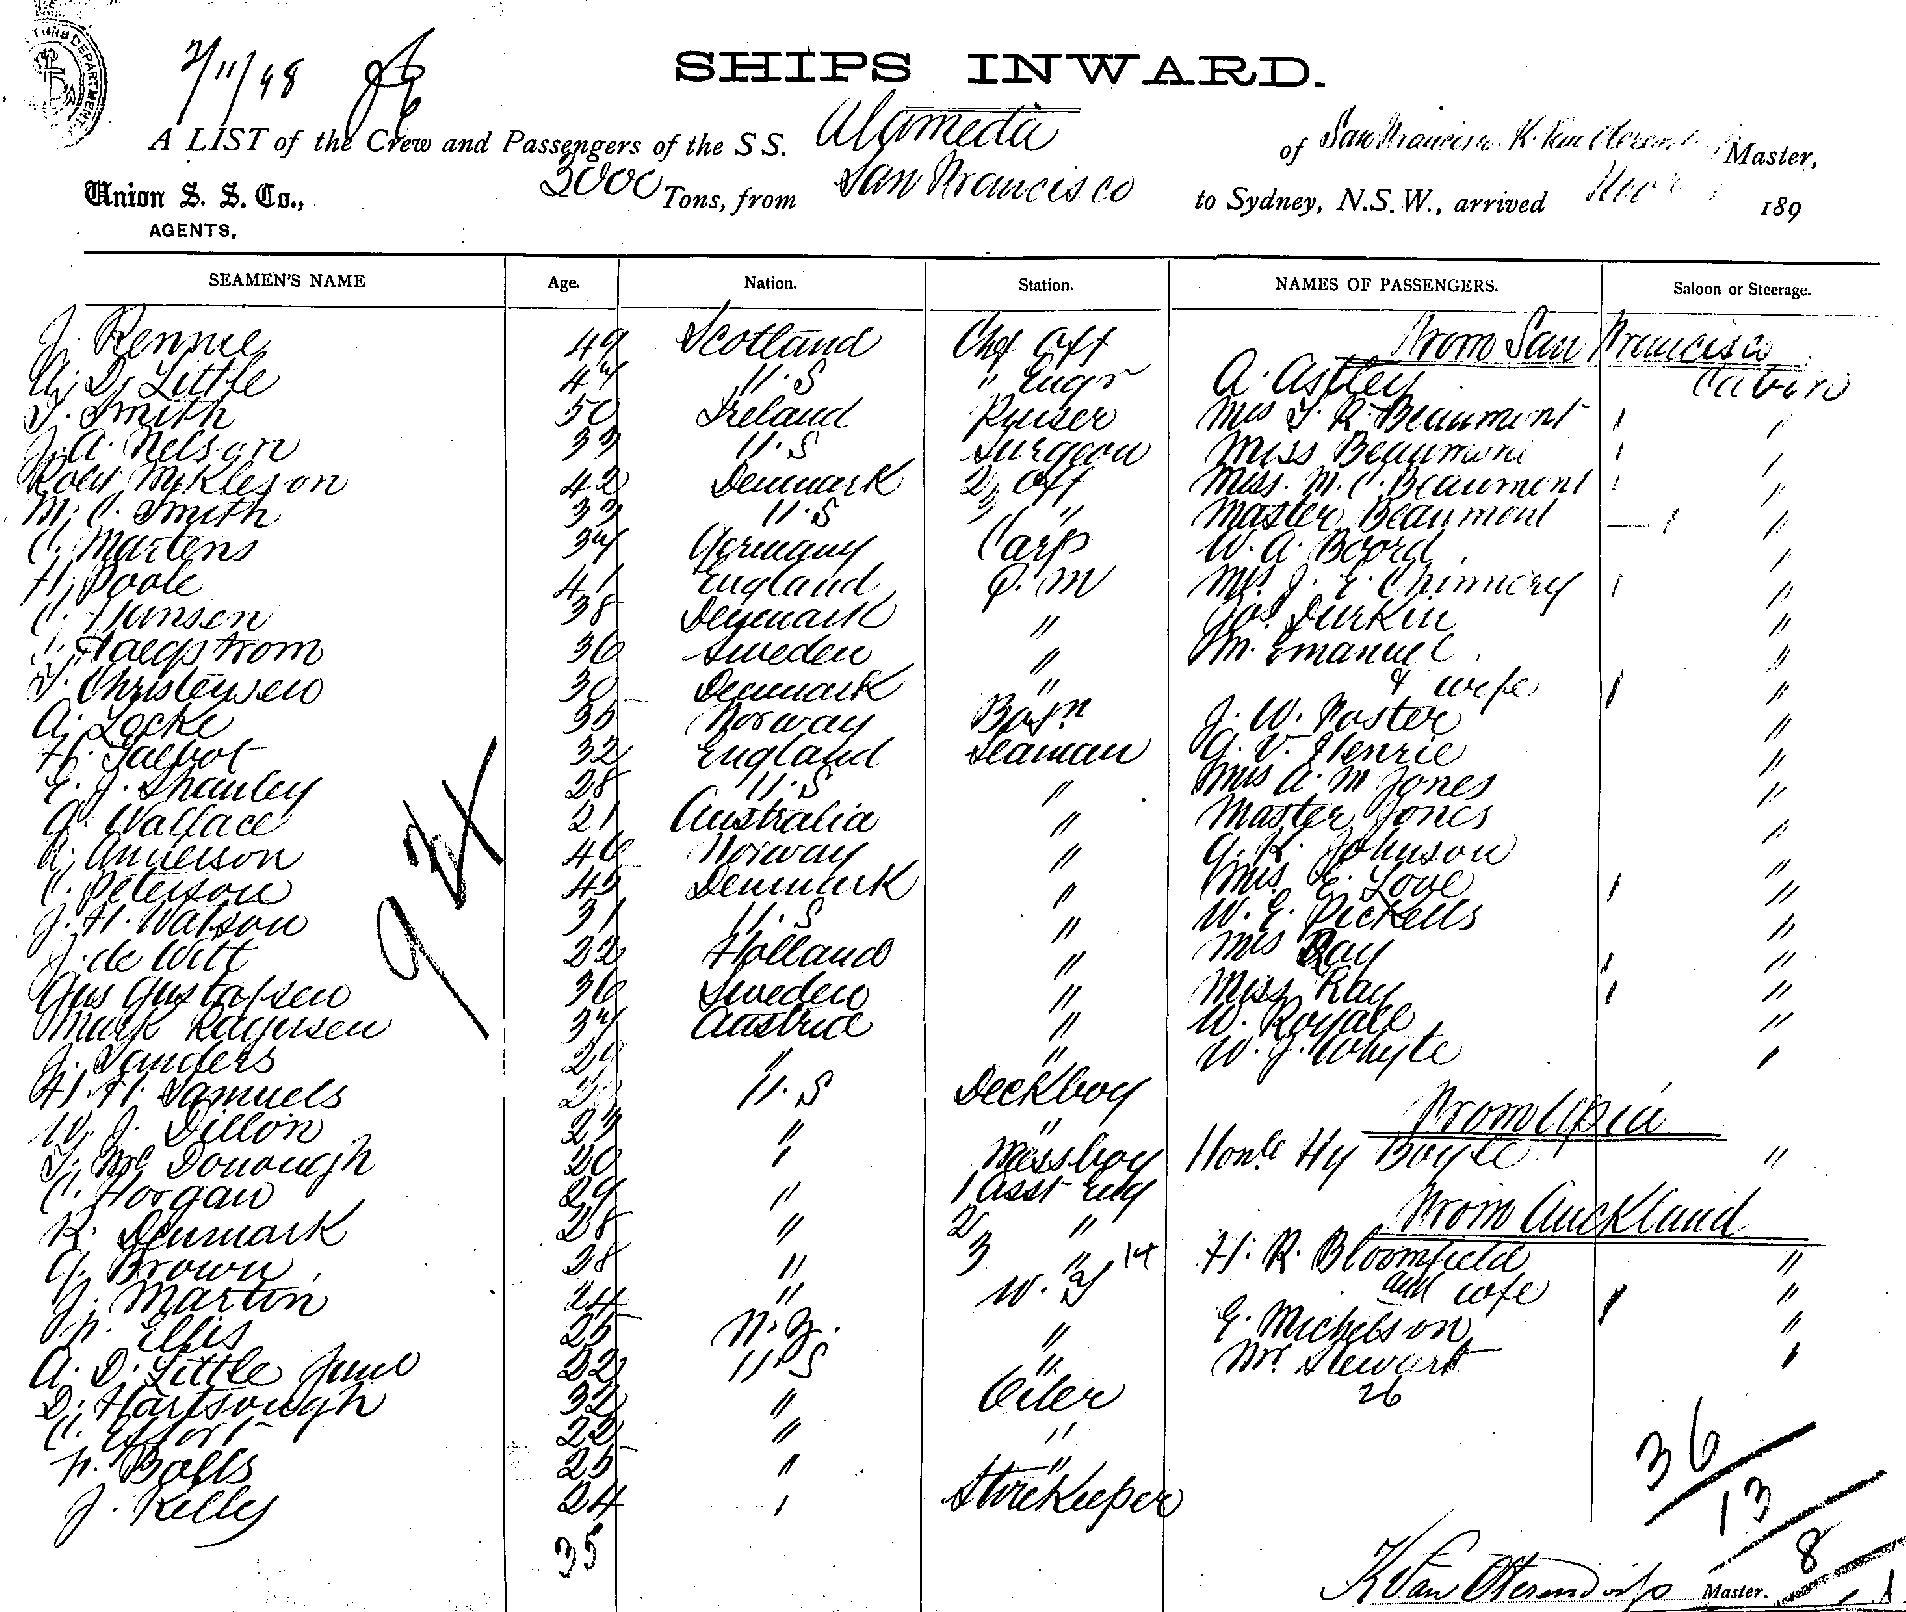 2/11/98
SHIPS INWARD.
A LIST of the Crew and Passengers of the S S. Alameda of San Francisco K. Van Oterendorp Master,
Union S. S. Co., 3000 Tons, from San Francisco to Sydney, N.S.W., arrived Nov 189
AGENTS,
SEAMEN'S NAME Age. Nation. Station. NAMES OF PASSENGERS. Saloon or Steerage.
From San Francisco
J. Rennie 49 Scotland Chf Off
A. D. Little 47 U.S " Engr A. Astley Cabin
T. Smith 50 Ireland Purser Mrs T. R. Beaumont "
J. A. Nelson 33 U.S Surgeon Miss Beaumont "
Robt Mykleson 42 Denmark 2 Off Miss. M. C. Beaumont "
M. C. Smith 33 U.S 3 " Master Beaumont "
C. Martens 37 Germany Carp W. A. Boord "
H. Poole 41 England Q. M Mrs. J. E. Chinnery "
C. Hansen 38 Denmark " Jos. Durkin "
Haegstrom 36 Sweden " M. Emanuel "
T. Christensen 30 Denmark " & wife "
A. Locke 35 Norway Bosn J. W. Foster "
H. Talbot 32 England Seaman G. V. Henrie "
E. J. Shanley 28 U.S " Mrs A. M Jones "
G. Wallace 21 Australia " Master Jones "
A. Anderson 46 Norway " G. K. Johnson "
C. Peterson 45 Denmark " Mrs. E. Love "
J. H. Watson 31 U.S " W. E. Pickells "
J. de Witt 22 Holland " Mrs Ray "
Gus Gustafsen 36 Sweden " Miss Ray "
Mark 37 Austria " W. Royale "
J. Sanders 29 " " W. J. Whyte "
H. H. Samuels U.S Deckboy
From Apia
W. J. Dillon 27 " "
T. Mc Donough 20 " Messboy Honle Hy Boyle "
C. Horgan 29 " 1 Asst Eng
From Auckland
R. Denmark 28 " 2 "
G. Brown 38 " 3 " H. R. Bloomfield "
J. Martin 24 " W. T and wife "
Ellis 25 N.Z. " E. Michelson "
A. D. Little Junr 22 U.S " Mr. Stewart "
26
D. Hartsough 32 " Oiler
C. 22 " "
Bolls 25 " "
J. Kelly 24 " Storekeeper
35
36
13
8
K Van Oterendorp Master.